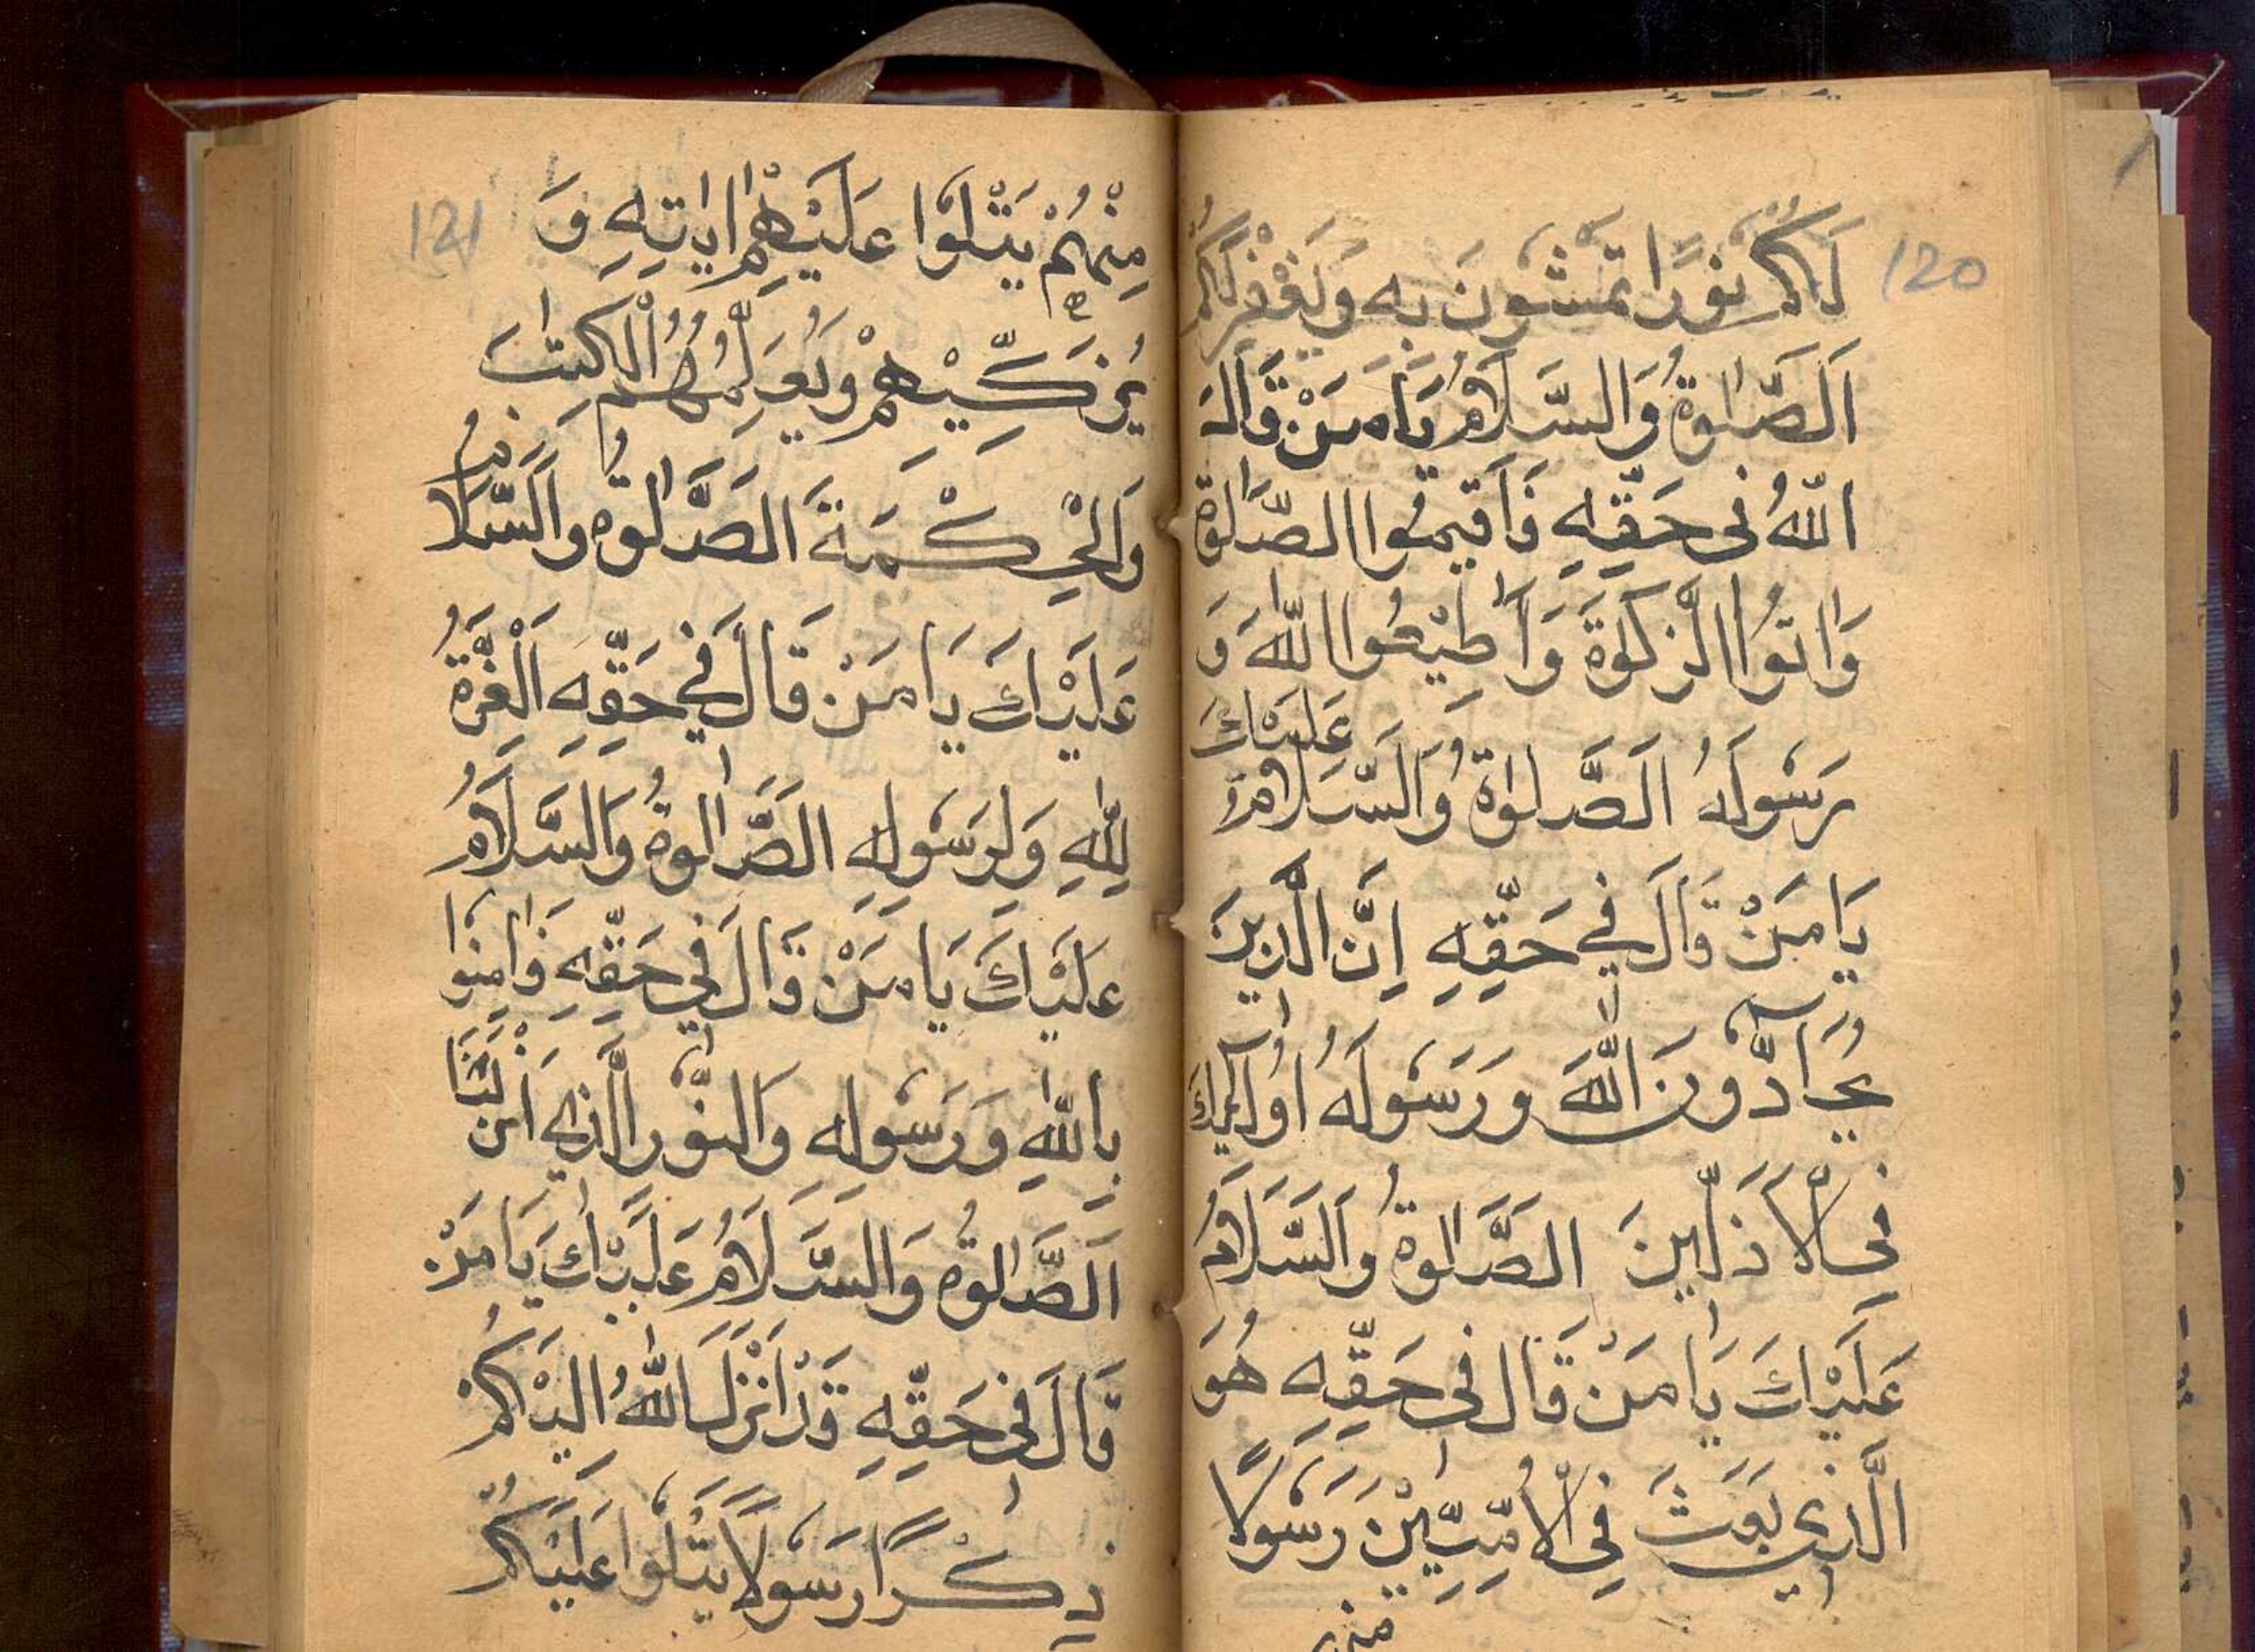 120
لَكُمْ نُوْرًا تَمْشُوْنَ بِهِ وَيَغْفِرْ لَكُمْ
اَلصَّلٰوةُ وَالسَّلَامُ يَا مَنْ قَالَ
اللّٰهُ فِى حَقِّهِ فَاَقِيمُوا الصَّلٰوةَ
وَاٰتُوا الزَّكٰوةَ وَاَطِيْعُوا اللّٰهَ وَ
عَلَيْكَ
رَسُوْلَهُ اَلصَّلٰوةُ وَالسَّلَامُ
يَا مَنْ قَالَ فِي حَقِّهِ اِنَّ الَّذِينَ
يُحَآدُّوْنَ اللّٰهَ وَرَسُوْلَهُ اُولٰٓئِكَ
فِى الْاَذَلِّينَ الصَّلٰوةُ وَالسَّلَامُ
عَلَيْكَ يَا مَنْ قَالَ فِى حَقِّهِ هُوَ
الَّذِي بَعَثَ فِي الْاُمِّيّٖنَ رَسُوْلًا
منهم
121
مِنْهُمْ يَتْلُوْا عَلَيْهِمْ اٰيٰتِهِ وَ
يُزَكِّيْهِمْ وَيُعَلِّمُهُمُ الْكِتٰبَ
وَالْحِكْمَةَ الصَّلٰوةُ وَالسَّلَامُ
عَلَيْكَ يَا مَنْ قَالَ فِي حَقِّهِ اَلْعِزَّةُ
لِلّٰهِ وَلِرَسُوْلِهِ الصَّلٰوةُ وَالسَّلَامُ
عَلَيْكَ يَا مَنْ قَالَ فِي حَقِّهِ فَاٰمِنُوْا
بِاللّٰهِ وَرَسُوْلِهِ وَالنُّوْرِ الَّذِي اَنْزَلْنَا
اَلصَّلٰوةُ وَالسَّلَامُ عَلَيْكَ يَا مَنْ
قَالَ فِى حَقِّهِ قَدْ اَنْزَلَ اللّٰهُ اِلَيْكُمْ
ذِكْرًا رَسُوْلًا يَتْلُوْا عَلَيْكُمْ